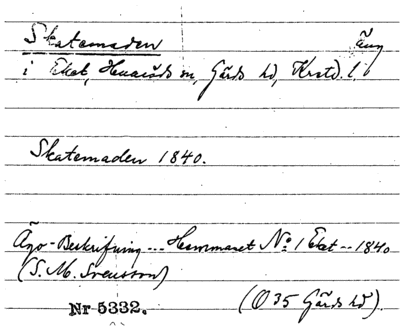 Skatemaden äng
i Ekat, Huaröds sn, Gärds hd, Krstd. l.
Skatemaden 1840.
Ägo-Beskrifning... Hemmanet No 1 Ekat -- 1840
(S. M. Svensson)
Nr 5332. (O 35 Gärds hd)